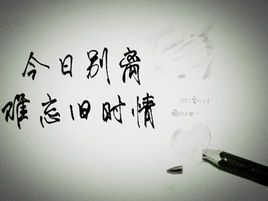 今日别离
难忘旧时情